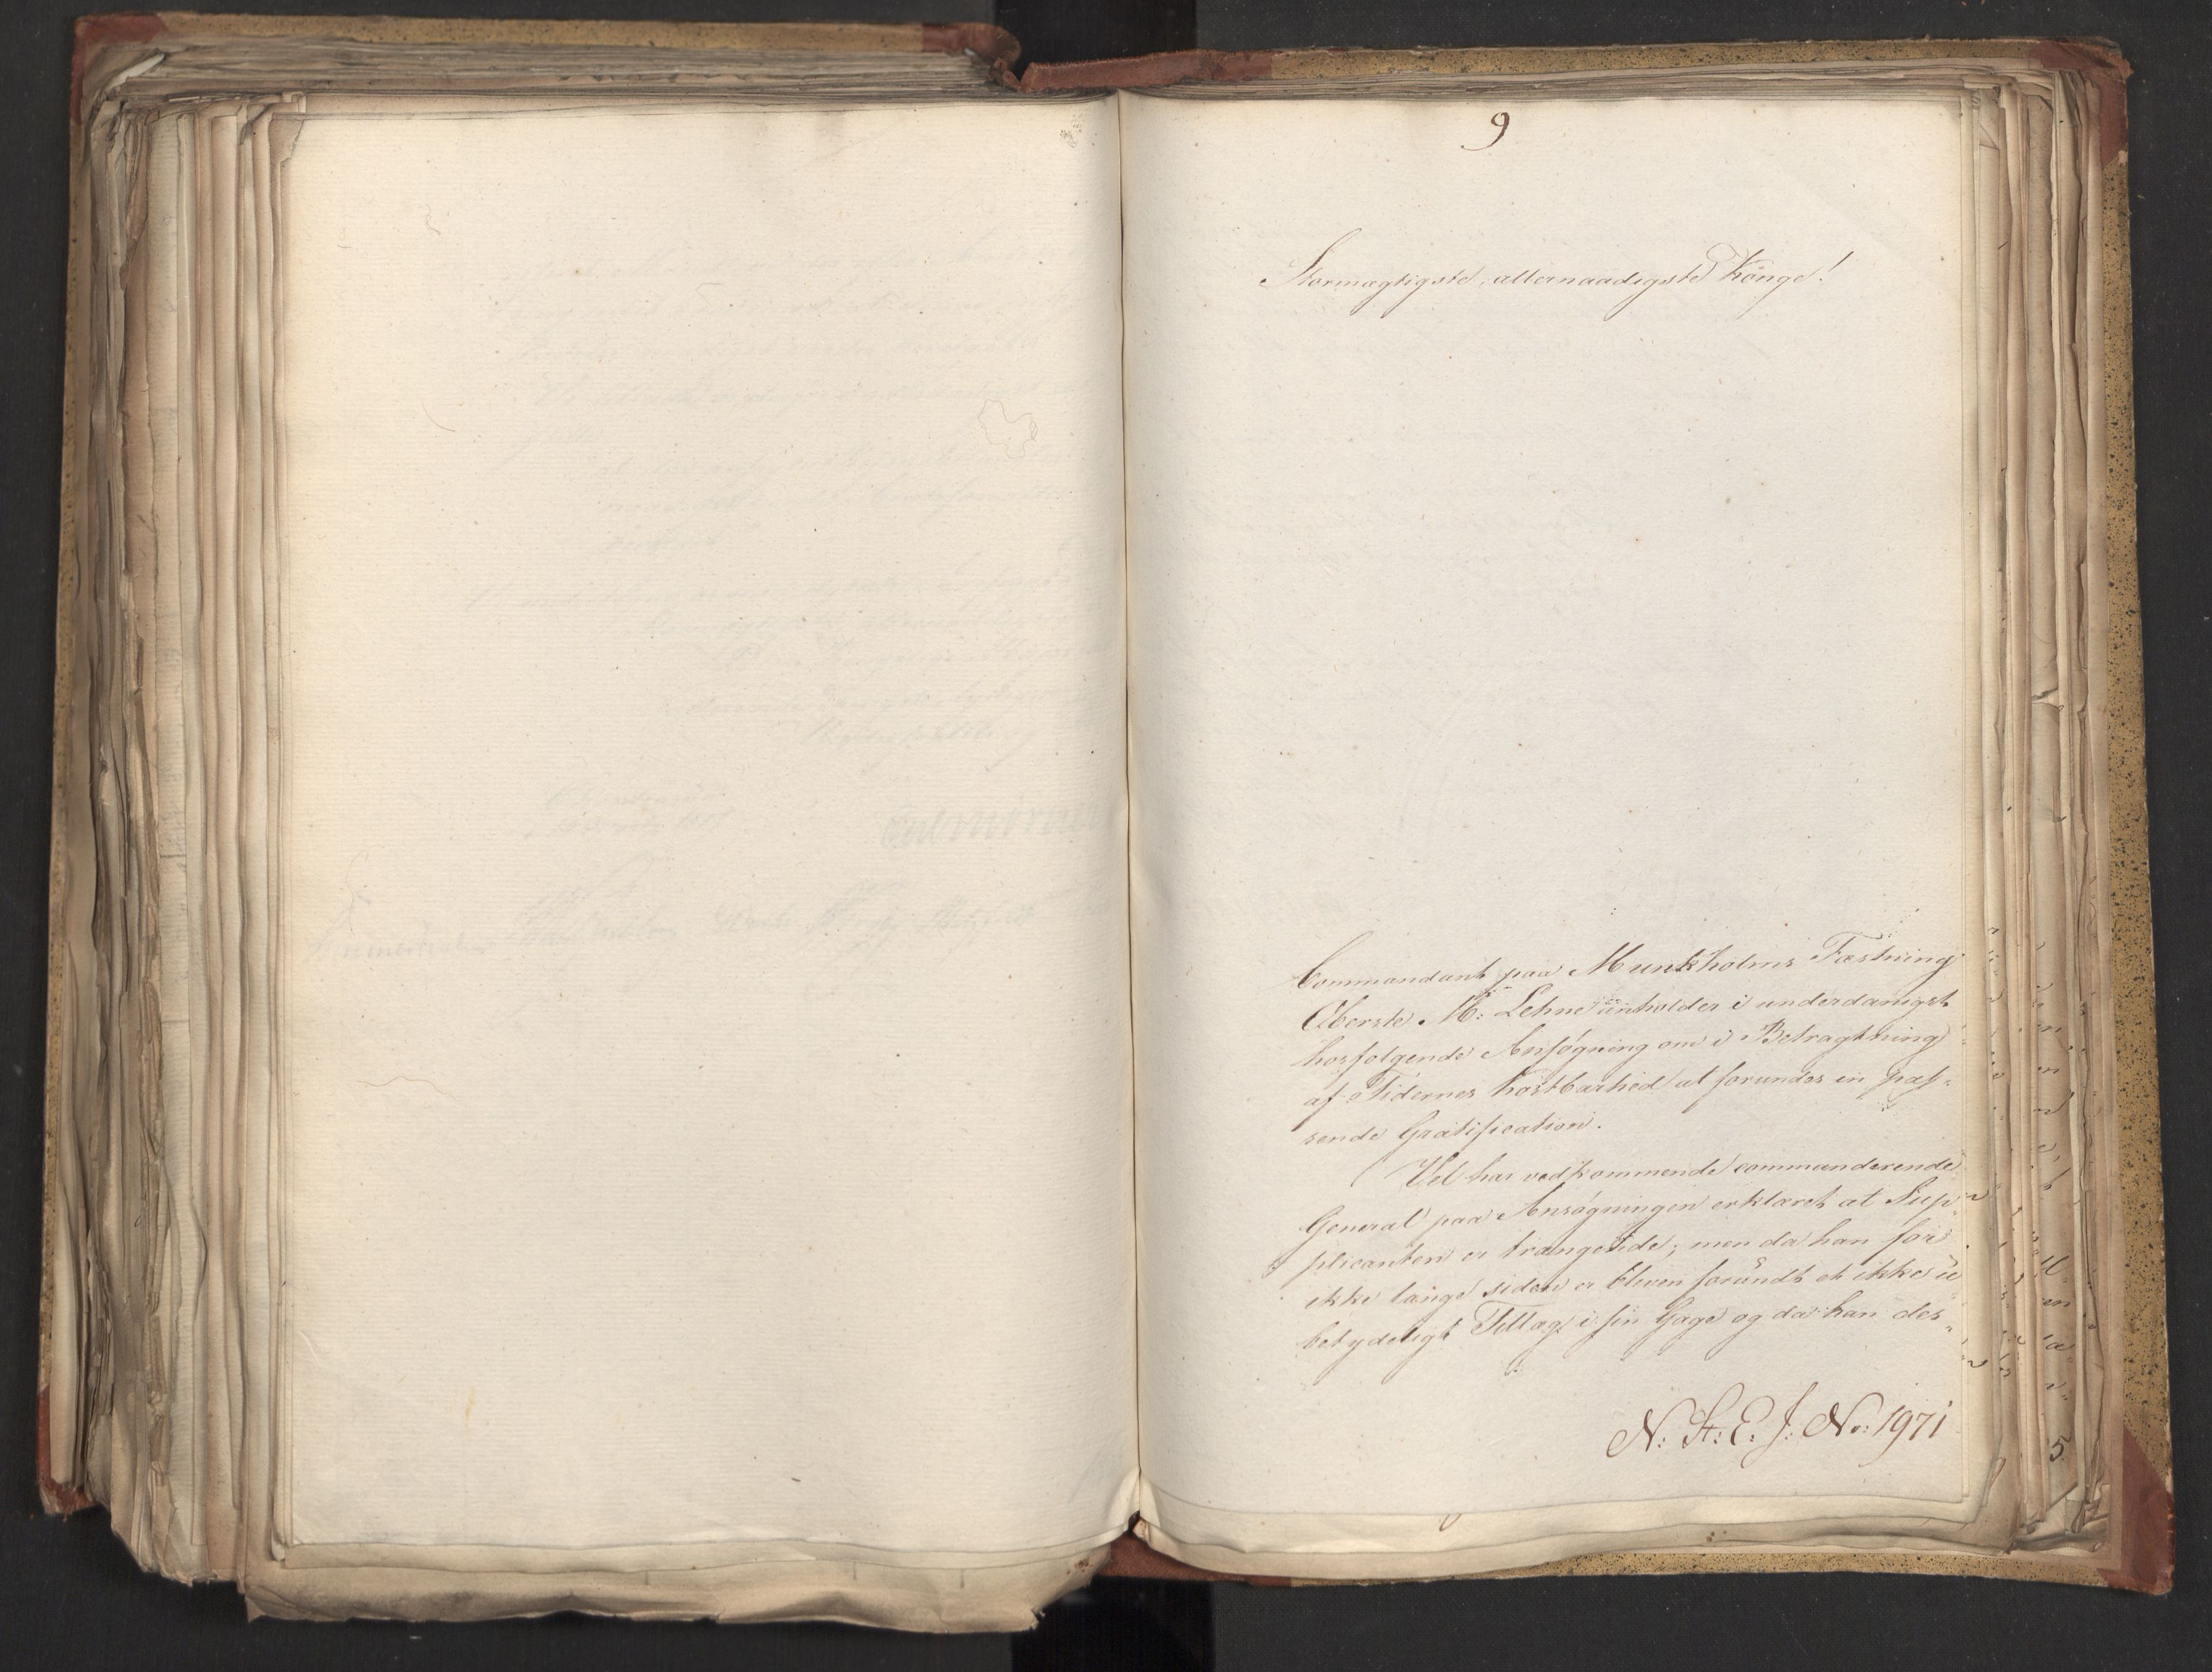 9
Stormægtigste, allernaadigste Konge!
Commandant paa Munkholms Fæstning
Oberste M: Lehne anholder i underdanigst
hosfølgende Ansøgning om i Betragtning
af Tidernes Kostbarhed at forundes en pas-
sende Gratification.
Vel har vedkommende commanderende
General paa Ansøgningen erklæret at Sup-
plicanten er trængende; men da han for
ikke længe siden er bleven forundt et ikke u-
betydeligt Tillæg i sin Gage og da han des-
N: St: E. J: No: 1971